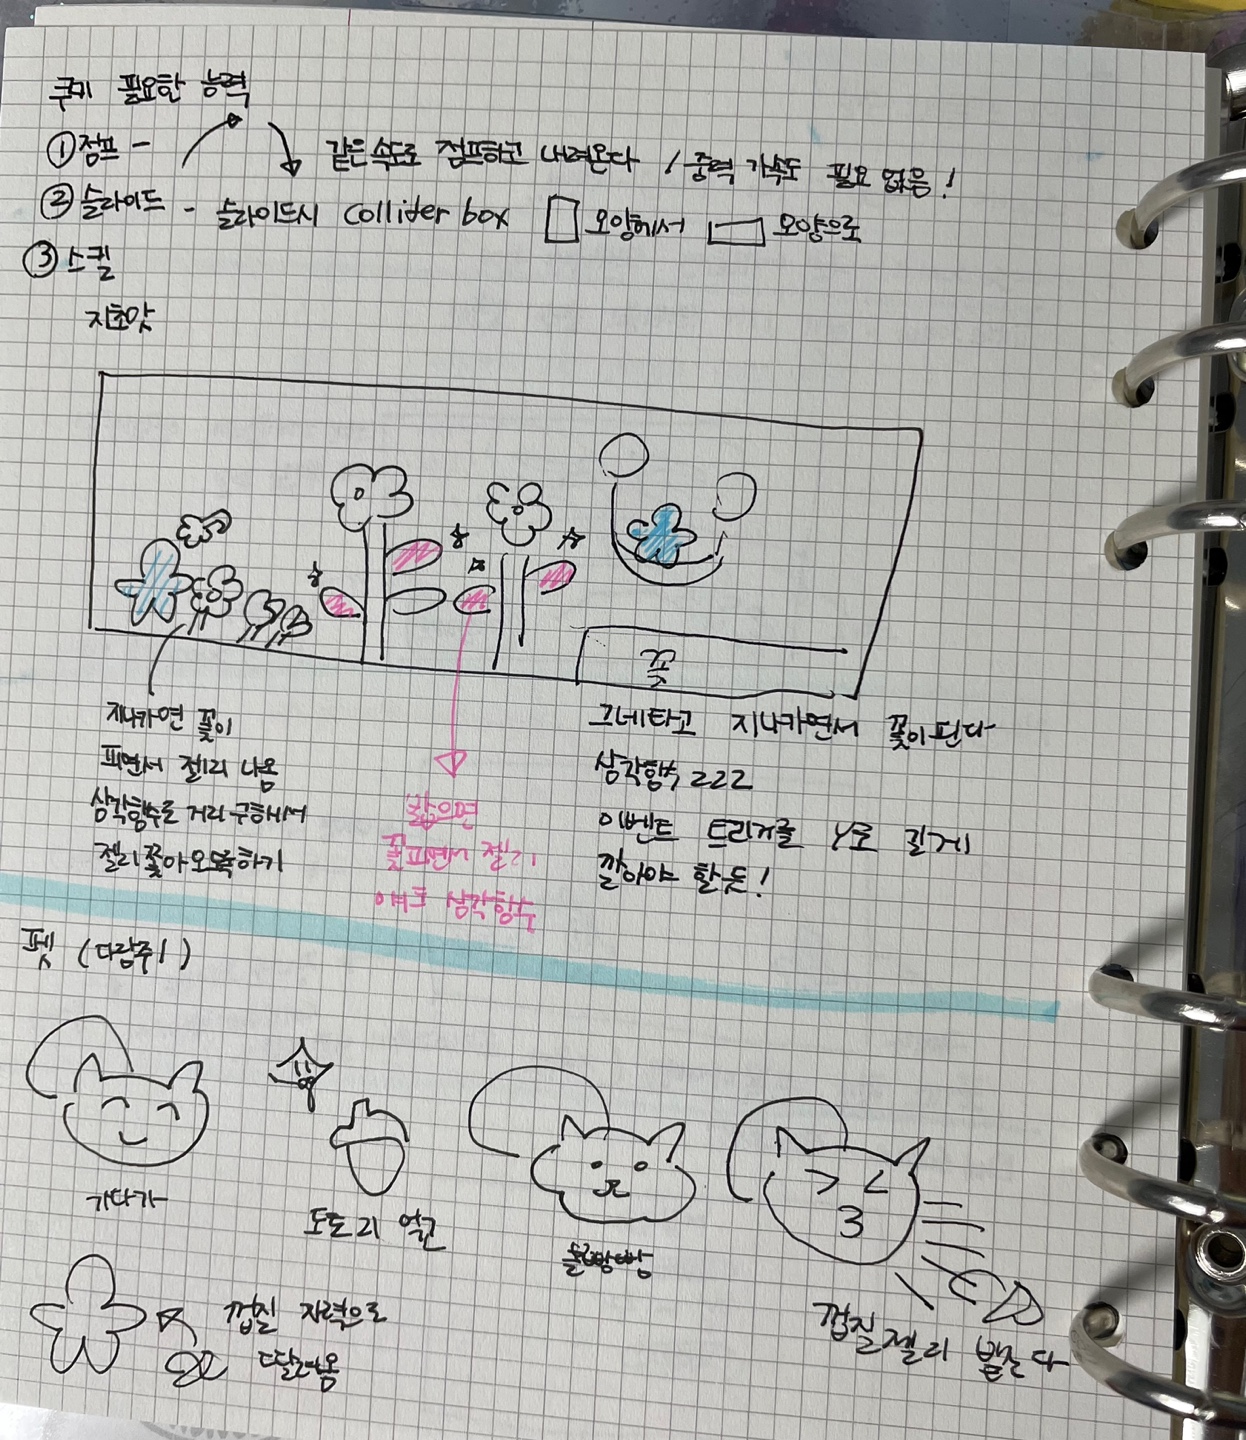 쿠키 필요한 능력
① 점프 - 같은 속도로 점프하고 내려온다 / 중력 가속도 필요 없음!
② 슬라이드 - 슬라이드시 Collider box 모양에서 모양으로
③ 스킬
지초맛
꽃
지나가면 꽃이
피면서 젤리 나옴
삼각함수로 거리 구해서
젤리 쫓아오도록하기
밟으면
꽃피면서 젤리
얘도 삼각함수
그네타고 지나가면서 꽃이 핀다
삼각함수 222
이벤트 트리거를 Y로 길게
깔아야 할듯!
펫 (다람쥐)
가다가
도토리 얻고
볼빵빵
껍질젤리 뱉는다
껍질 자력으로
딸려옴